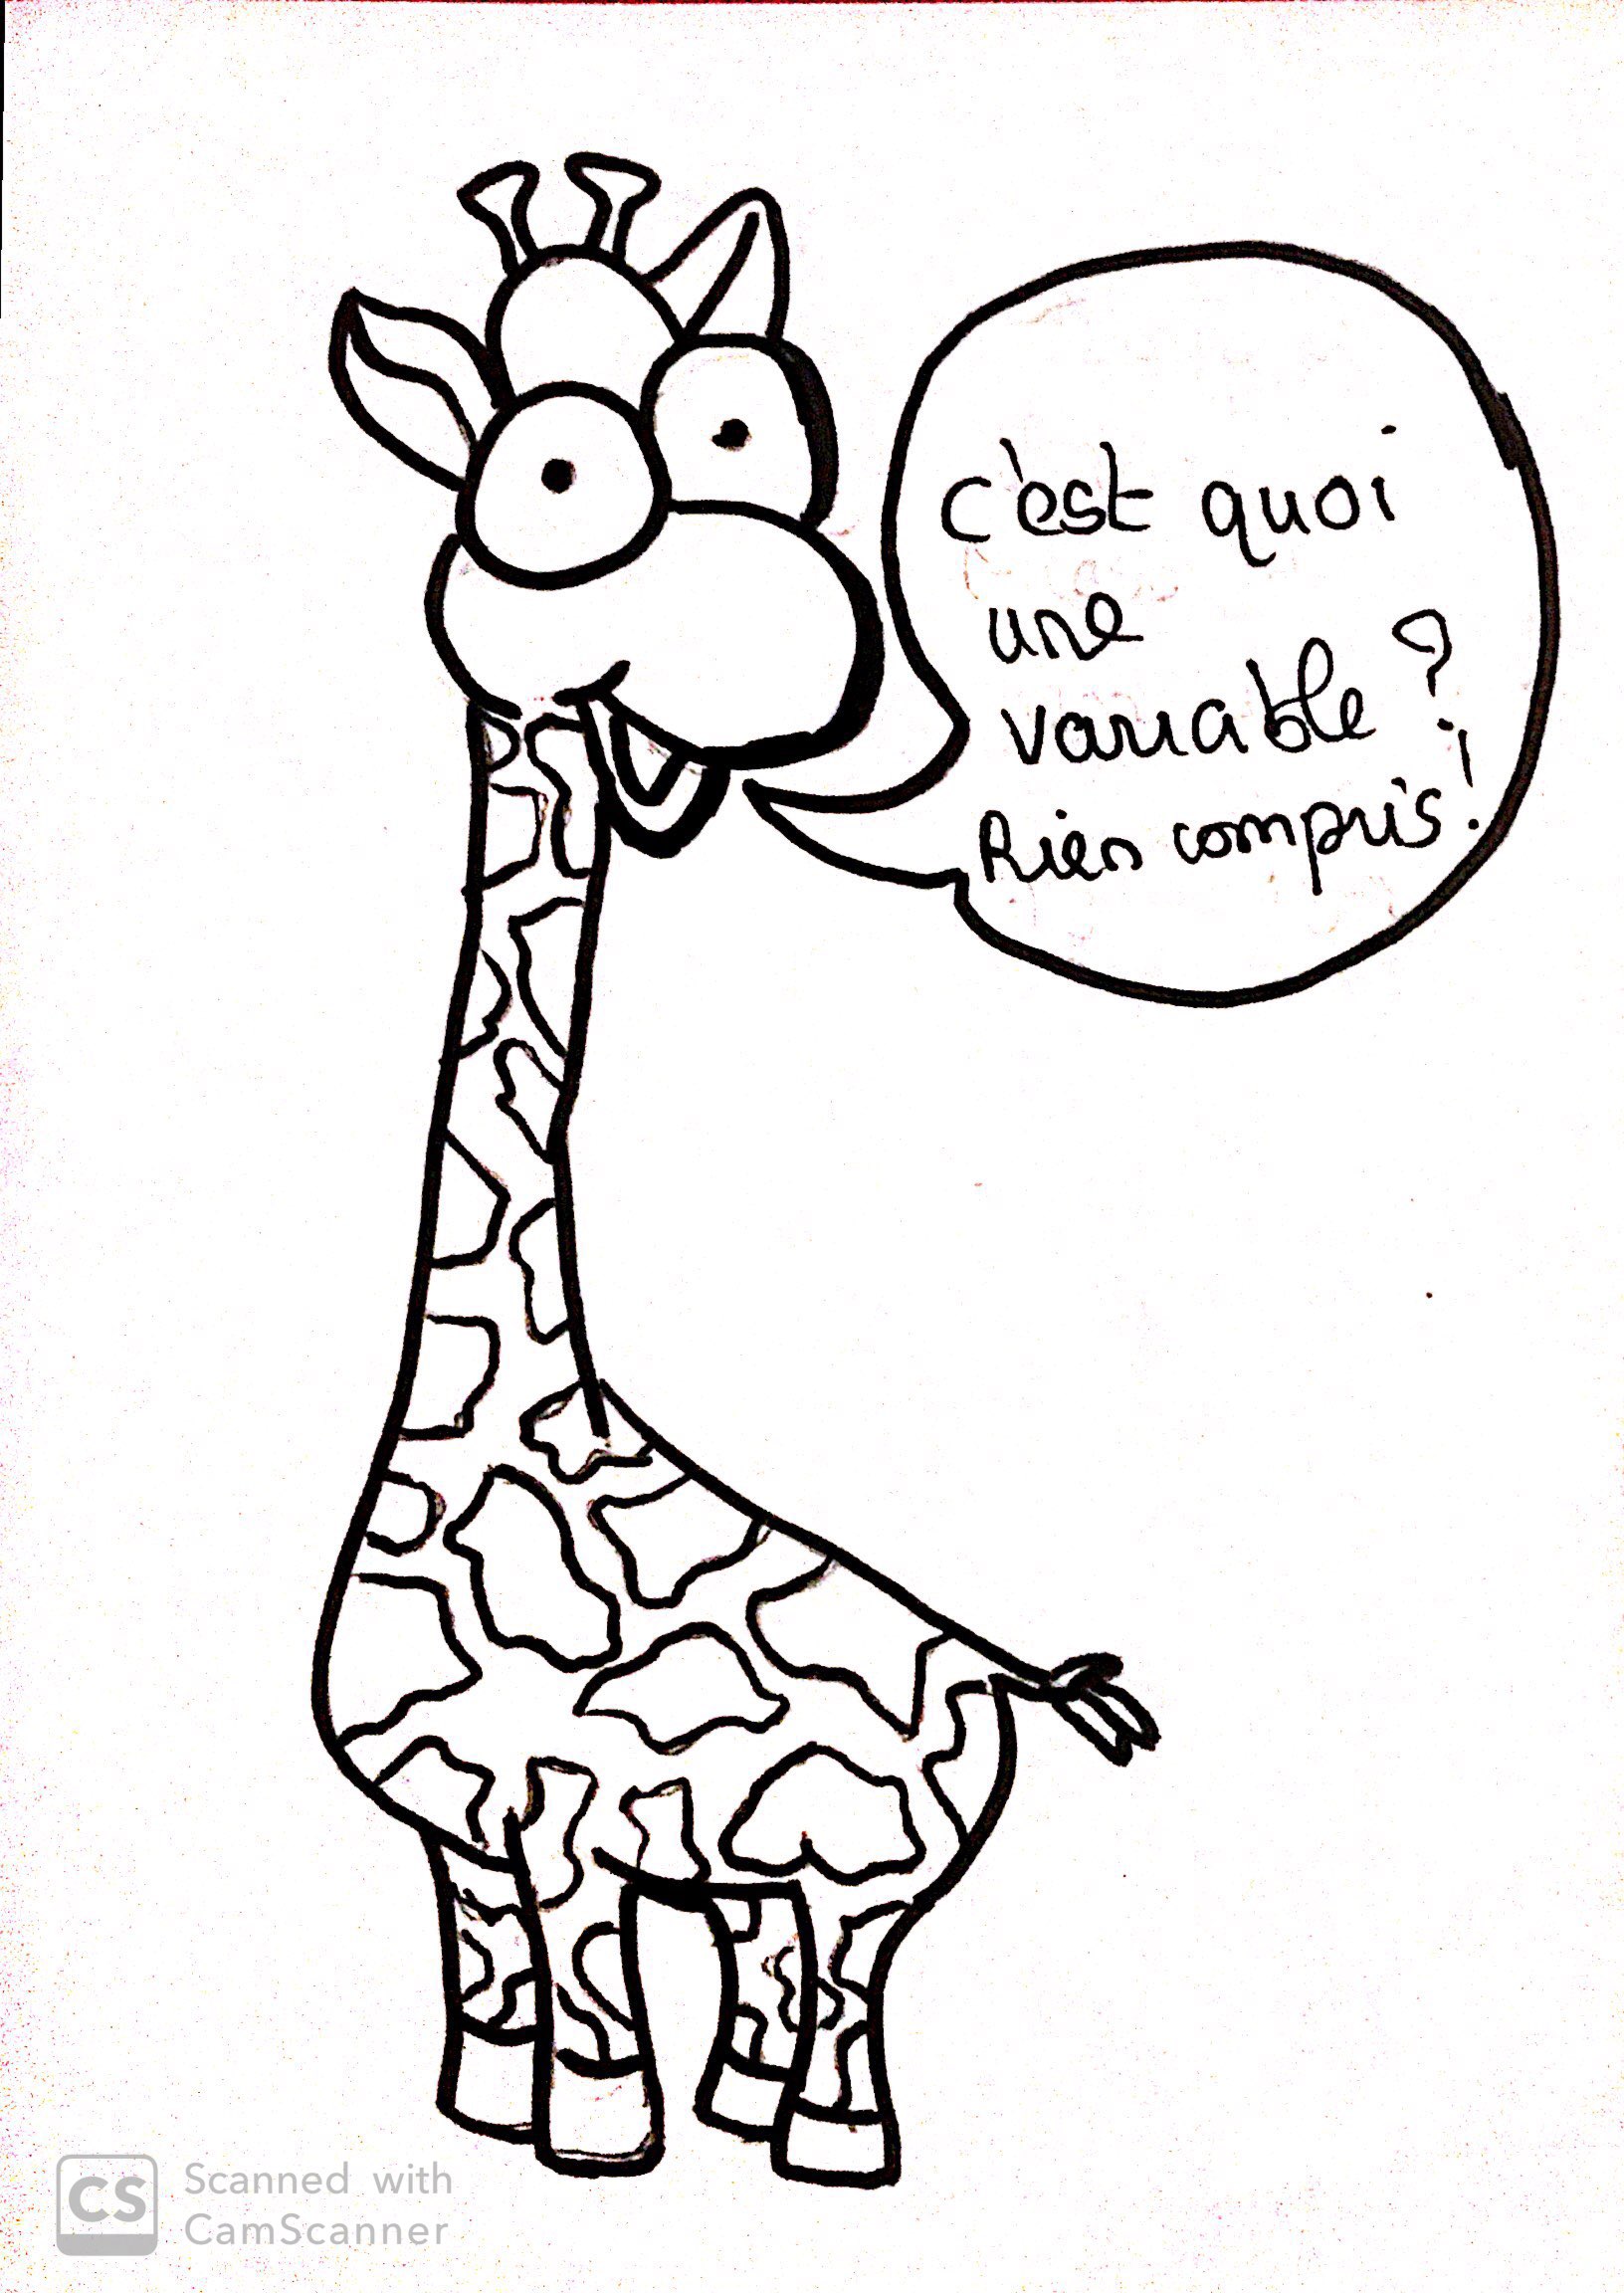 c'est quoi
une
variable ?
Rien compris !
CS Scanned with
CamScanner